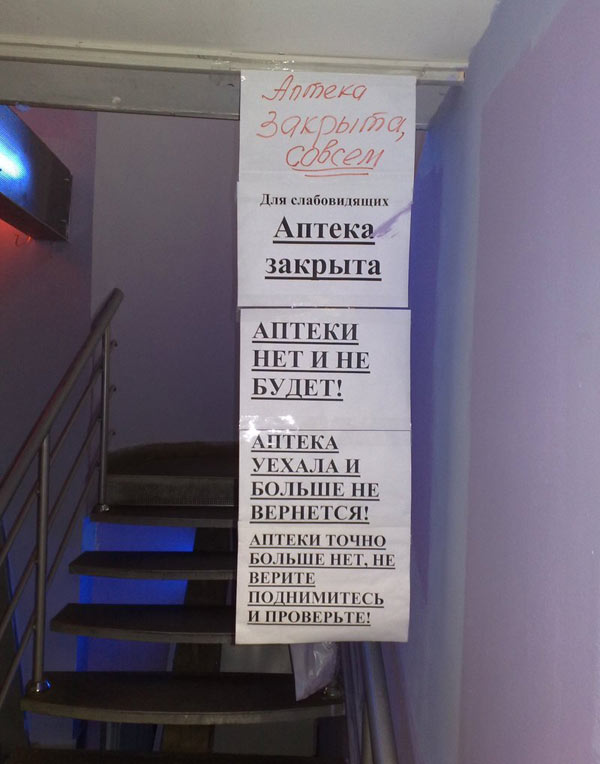 Аптека
закрыта,
совсем
Для слабовидящих
Аптека
закрыта
АПТЕКИ
НЕТ И НЕ
БУДЕТ!
АПТЕКА
УЕХАЛА И
БОЛЬШЕ НЕ
ВЕРНЕТСЯ!
АПТЕКИ ТОЧНО
БОЛЬШЕ НЕТ, НЕ
ВЕРИТЕ
ПОДНИМИТЕСЬ
И ПРОВЕРЬТЕ!